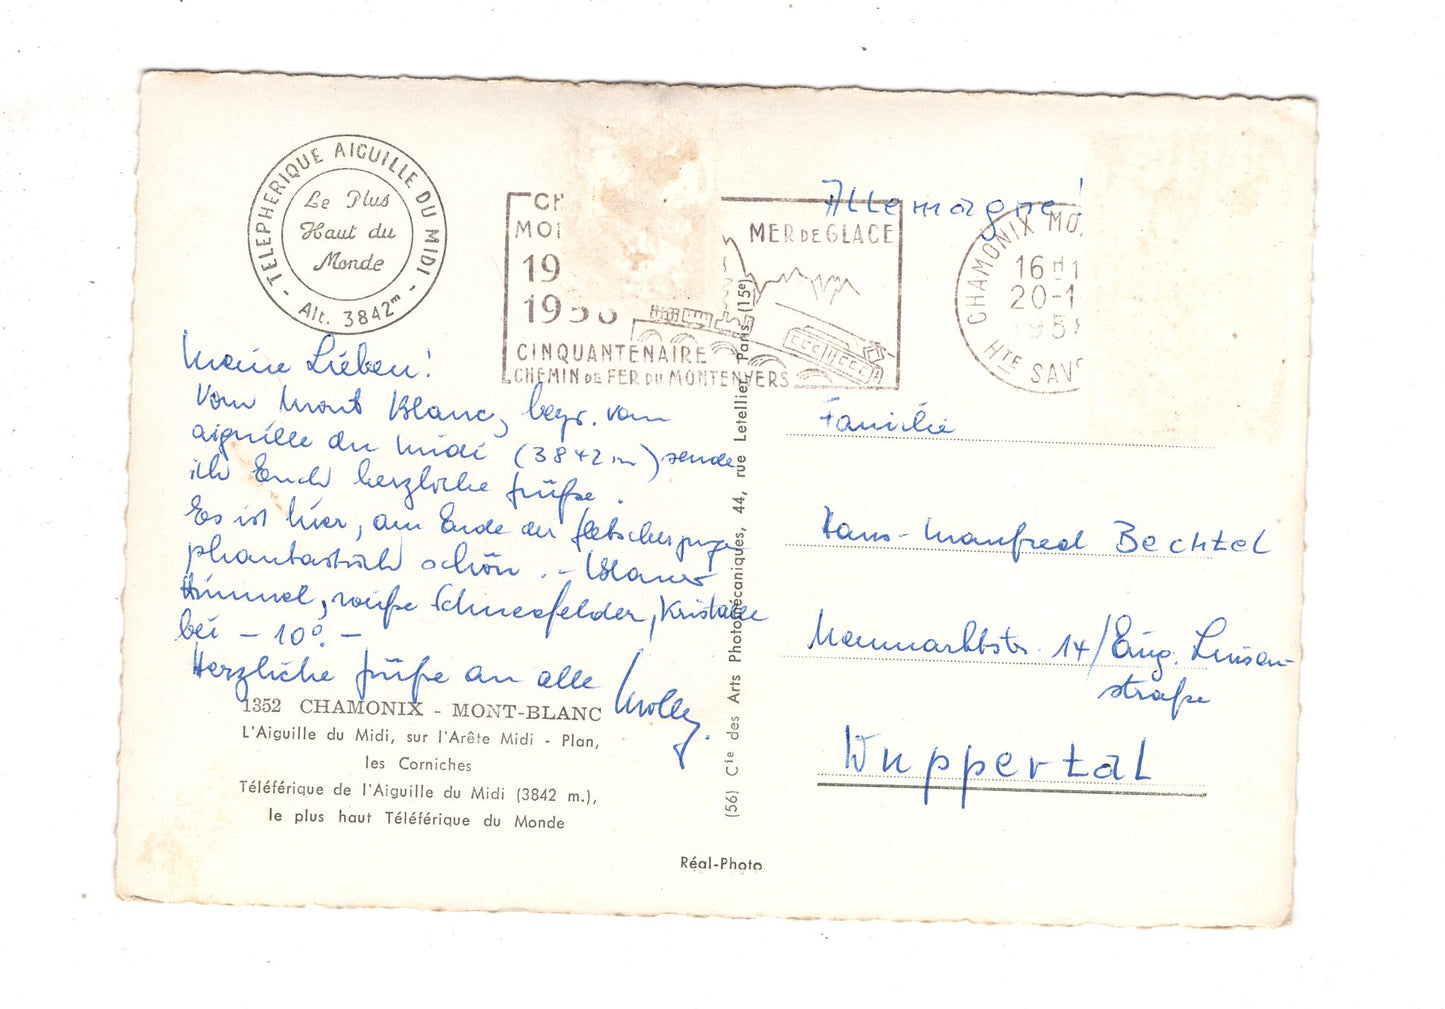 TELEPHERIQUE AIGUILLE DU MIDI
Le Plus
Haut du
Monde
- Alt. 3842m -
CH
MO
MER DE GLACE
19
1958
CINQUANTENAIRE
CHEMIN DE FER DU MONTENVERS
Allemagne!
CHAMONIX MO
16 H 1
20-1
1958
HTE SAV
Meine Lieben!
Vom Mont Blanc, bezw. vom
aiguille du midi (3842 m) sende
ich Euch herzliche Grüße.
Es ist hier, am Ende der
phantastisch schön. - Blauer
Himmel, weiße Schneefelder, Kristalle
bei - 10°. -
Herzliche Grüße an alle
Molly.
1352 CHAMONIX - MONT-BLANC
L'Aiguille du Midi, sur l'Arête Midi - Plan,
les Corniches
Téléférique de l'Aiguille du Midi (3842 m.),
le plus haut Téléférique du Monde
(56) Cie des Arts Photomécaniques, 44, rue Letellier, Paris (15e)
Réal-Photo
Familie
Hans-Manfred Bechtel
14/Eing. Luisen-
straße
Wuppertal